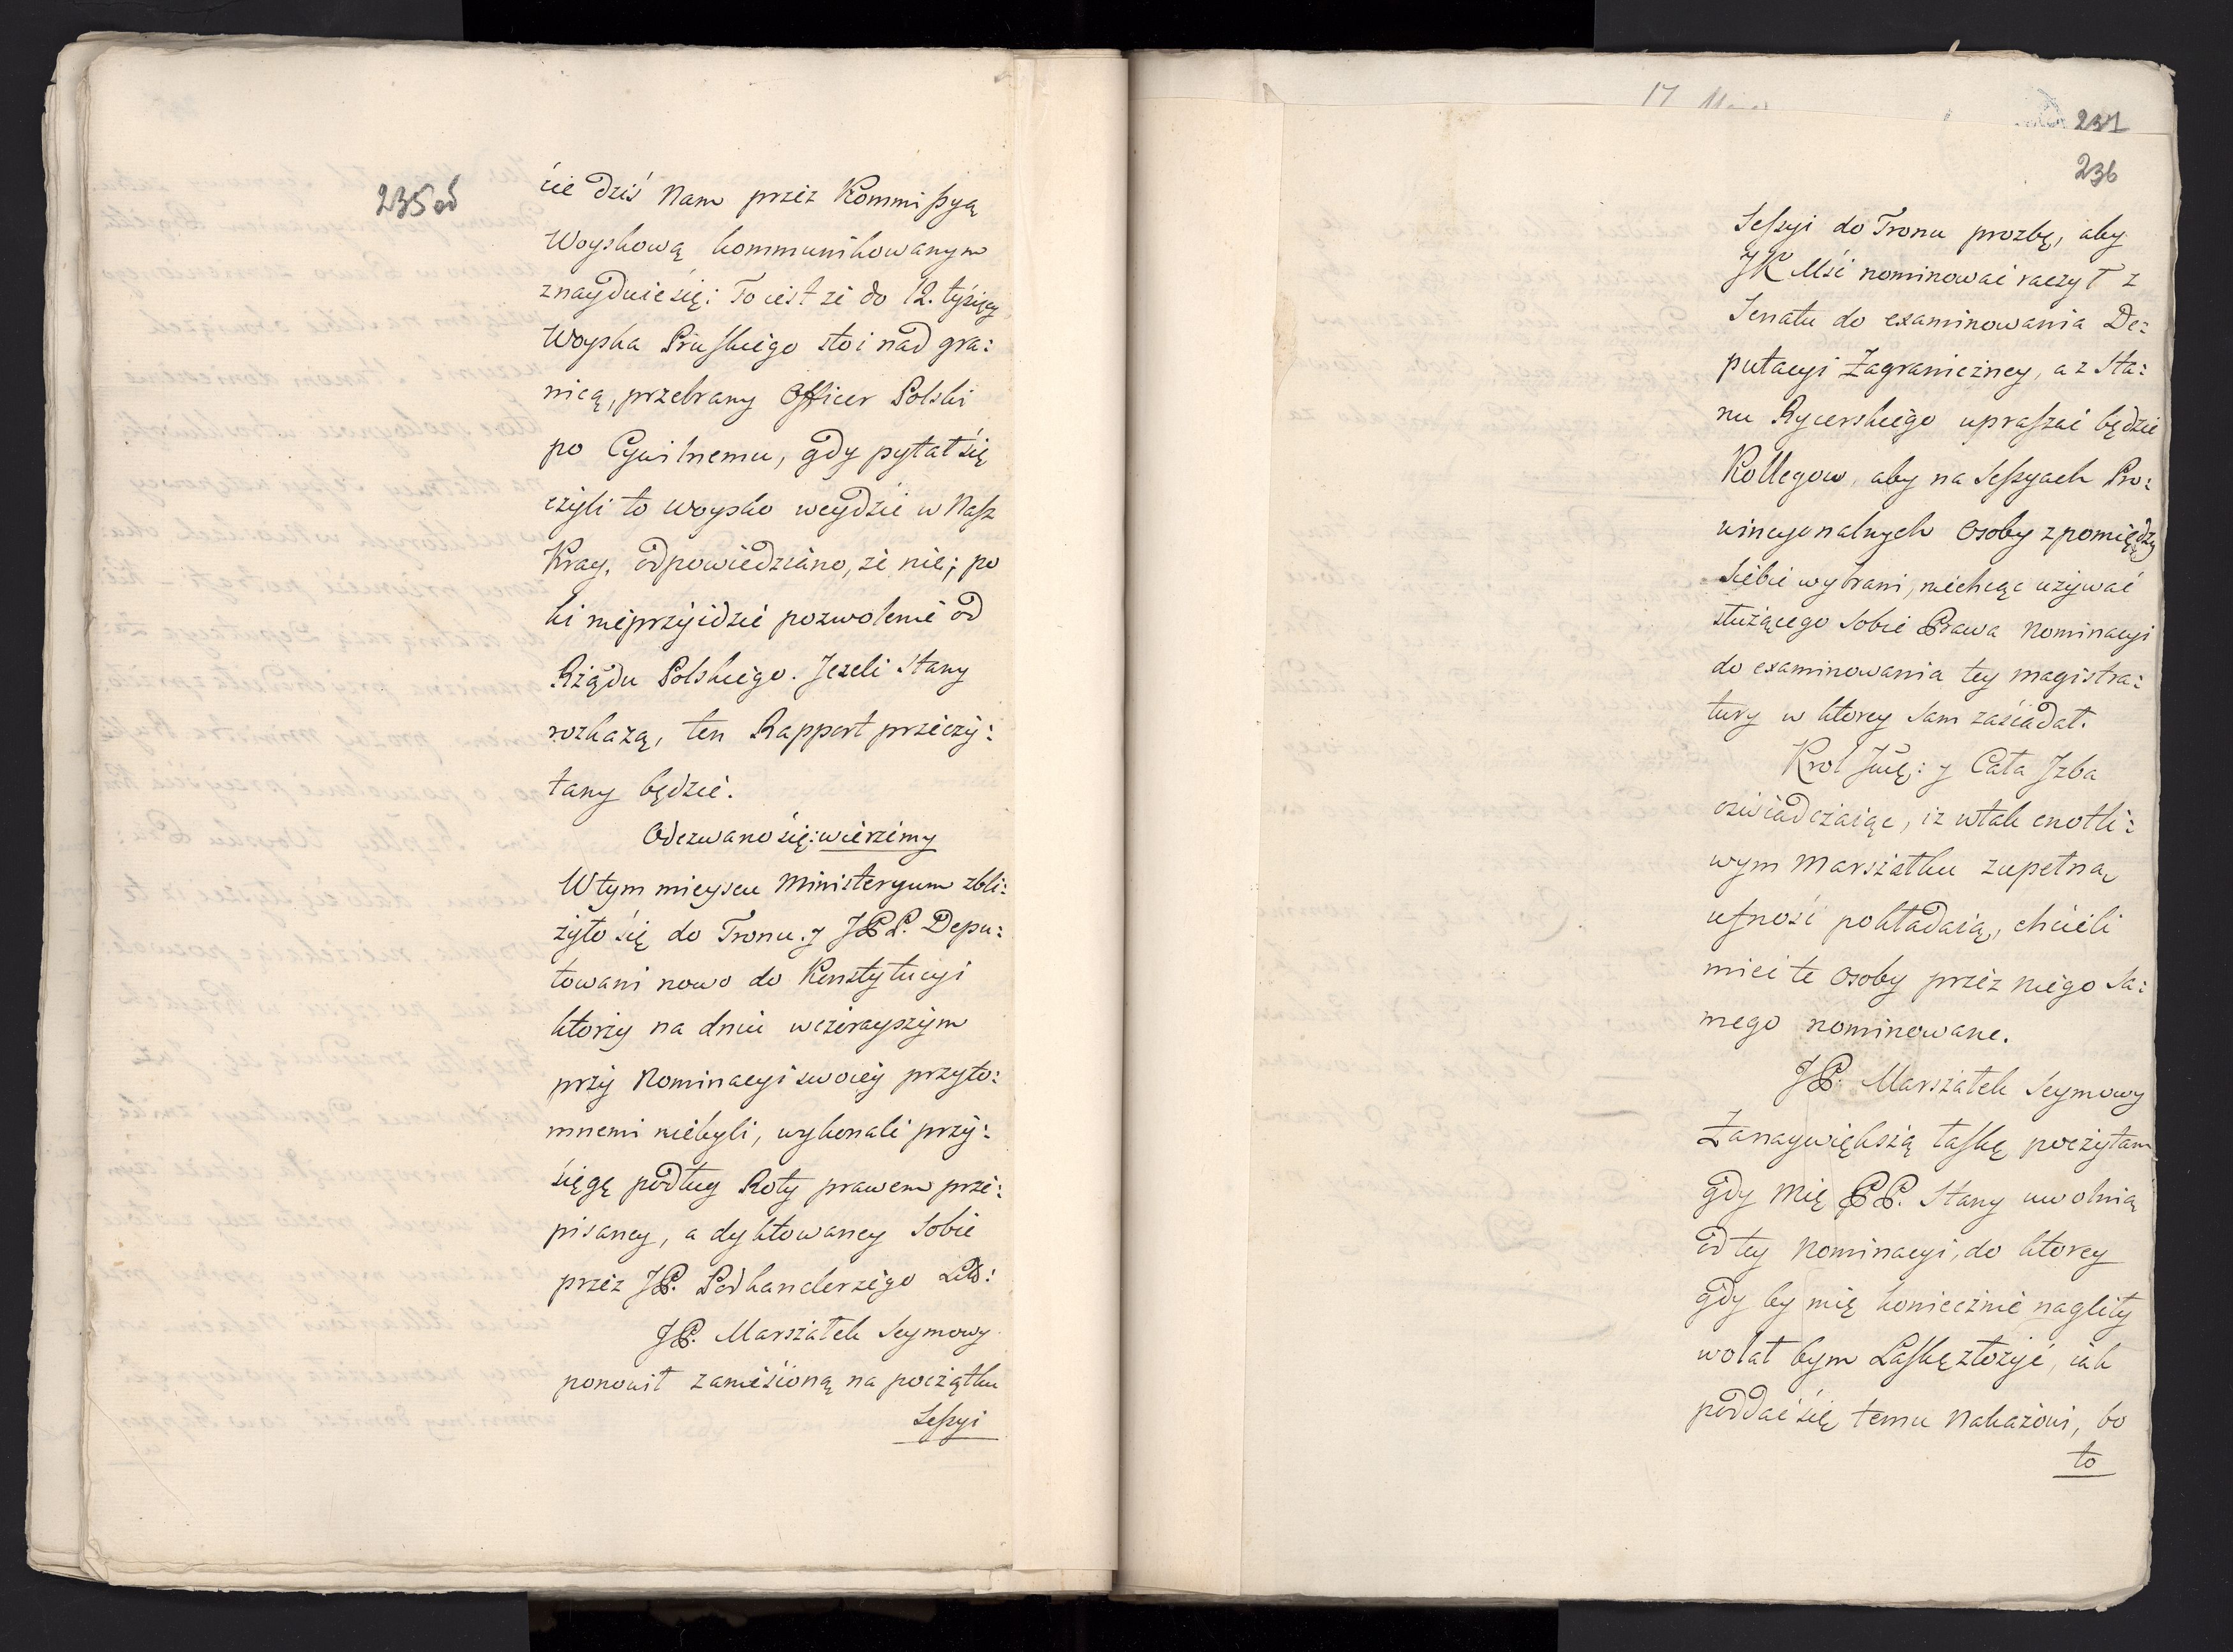 235 od
cie dziś Nam przez Kommißyą
Woyskową kommunikowanym
znayduie się: To iest że do 12. tysięcy
Woyska Pruskiego stoi nad gra:
nicą, przebrany Officer Polski
po Cywilnemu, gdy pytał się
czyli to woysko weydzie w Nasz
Kray, odpowiedziano, że nie; po
ki nieprzyidzie pozwolenie od
Rządu Polskiego. Jezeli Stany
rozkażą, ten Rapport przeczy:
tany będzie.
Odezwano się: wierzemy
W tym mieyscu Ministeryum zbli:
żyło się do Tronu. y JPP. Depu:
towani nowo do Konstytucyi
ktorzy na dniu wczorayszym
przy Nominacyi swoiey przyto:
mnemi niebyli, wykonali przy:
sięgę podług Roty prawem prze:
pisaney, a dyktowaney Sobie
przez JP. Podkanclerzego Litt:
JP. Marszałek Seymowy
ponowił zaniesioną na początku
Seßyi
17 Maja
231
236
Seßyi do Tronu prozbę, aby
JK Mść nominować raczył z
Senatu do examinowania De:
putacyi Zagraniczney, a z Sta:
nu Rycerskiego upraszać będzie
Kollegow, aby na Seßyach Pro:
wincyonalnych Osoby z pomiędzy
Siebie wybrani, niechcąc używać
służącego Sobie Prawa Nominacyi
do examinowania tey magistra:
tury w ktorey Sam zasiadał.
Krol Jmć: y Cała Jzba
oświadczaiąc, iż w tak cnotli:
wym Marszałku zupełną
ufność pokładaią, chcieli
mieć te Osoby przez niego Sa:
mego nominowane.
JP. Marszałek Seymowy
Za naywiększą łaskę poczytam
gdy mię PP. Stany uwolnią
od tey Nominacyi, do ktorey
gdy by mię koniecznie nagliły
wolał bym Laskę złożyć, iak
poddać się temu Nakazowi, bo
to